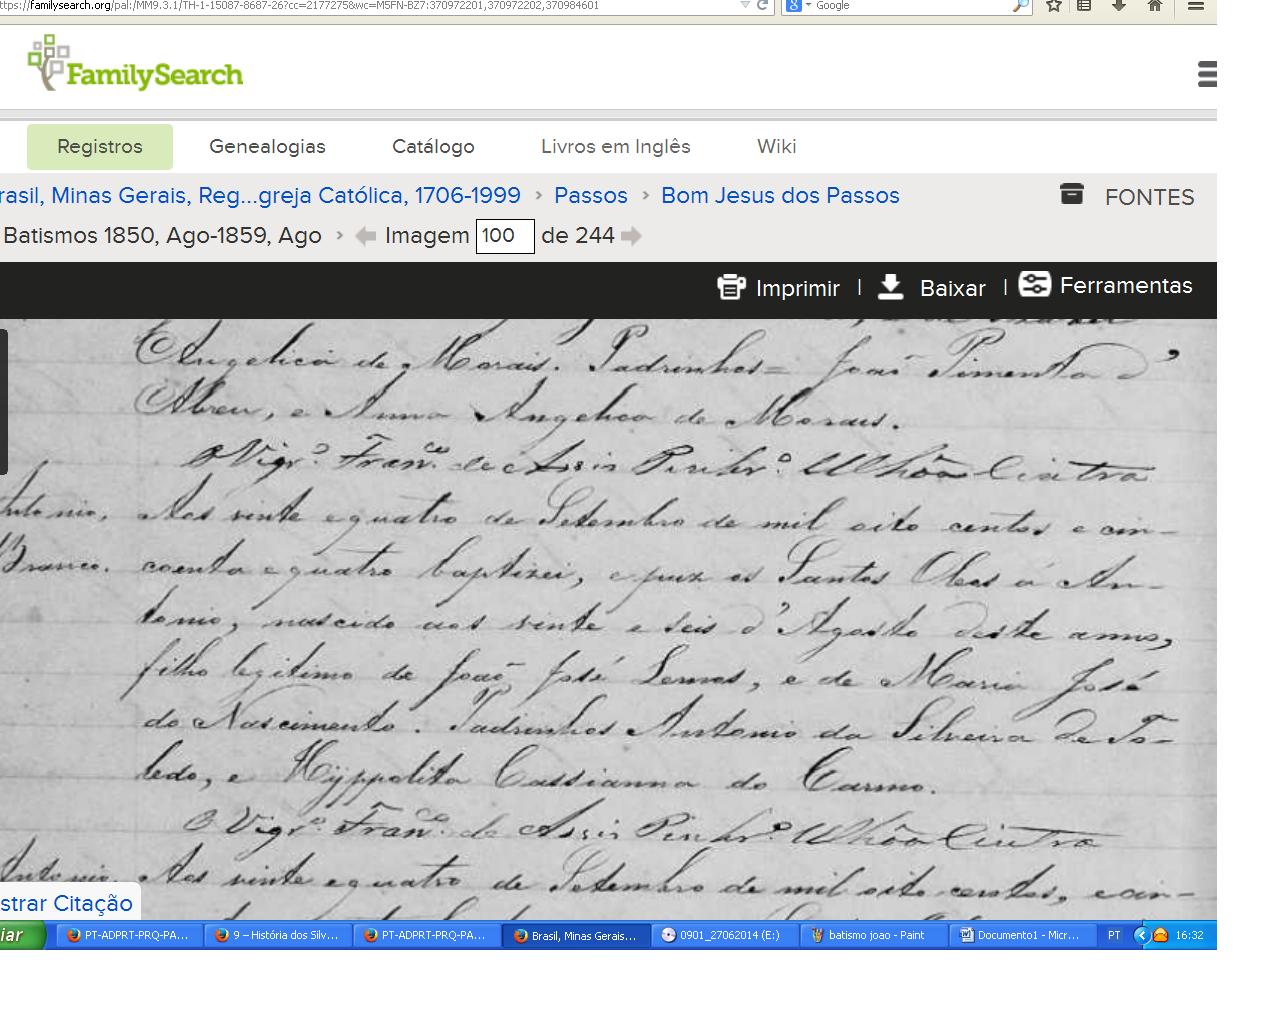 https://familysearch.org/pal:/MM9.3.1/TH-1-15087-8687-26?cc=2177275&wc=M5FN-BZ7:370972201,370972202,370984601
Google
FamilySearch
Registros Genealogias Catálogo Livros em Inglês Wiki
rasil, Minas Gerais, Reg...greja Católica, 1706-1999 › Passos › Bom Jesus dos Passos
FONTES
Batismos 1850, Ago-1859, Ago › Imagem 100 de 244
Imprimir | Baixar | Ferramentas
Angelica de Morais. Padrinhos = João Pimenta d'
Abreu, e Anna Angelica de Morais.
O Vigr.º Fran.co de Assis Pinhr.º Ulhôa Cintra
Antonio, Aos vinte e quatro de Setembro de mil oito centos e cin-
Branco. coenta e quatro baptizei, e puz os Santos Oleos á An-
tonio, nascido aos vinte e seis d'Agosto deste anno,
filho legitimo de João José Lemos, e de Maria José
do Nascimento. Padrinhos Antonio da Silveira de To-
ledo, e Hyppolita Cassianna do Carmo.
O Vigr.º Fran.co de Assis Pinhr.º Ulhôa Cintra
Antonio, Aos vinte e quatro de Setembro de mil oito centos, e cin-
strar Citação
iar PT-ADPRT-PRQ-PA... 9 – História dos Silv... PT-ADPRT-PRQ-PA... Brasil, Minas Gerais... 0901_27062014 (E:) batismo joao - Paint Documento1 - Micr... PT 16:32